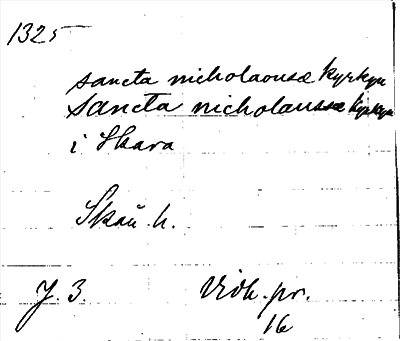 1325
sancta nicholaousæ kyrkyu
Sancta nicholausæ kyrkyu
i Skara
Skaū h.
J. 3. Vidh. pr.
16